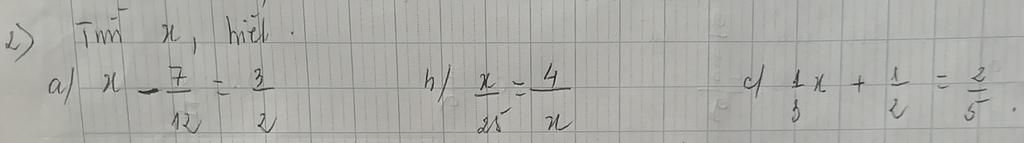 2) Tìm x, biết.
a) x - 7/12 = 3/2 b) x/25 = 4/x c) 1/3 x + 1/2 = 2/5.